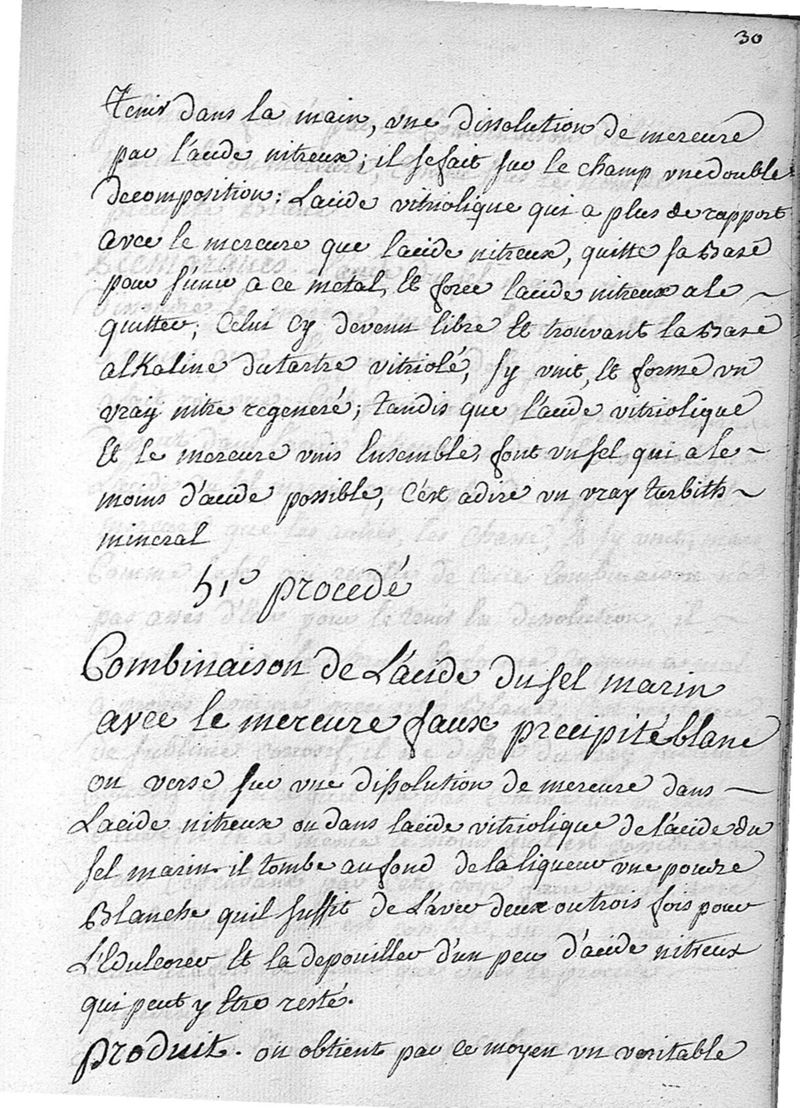 30
tenir dans la main, vne dissolution de mercure
par l'acide nitreux; il se fait sur le champ vne double
decomposition; L'acide vitriolique qui a plus de rapport
avec le mercure que l'acide nitreux, quitte sa Base
pour s'unir a ce metal, Et force l'acide nitreux a le
quitter; Celui Cy devenu libre Et trouvant la Base
alKaline du tartre vitriolé, s'y vnit, Et forme vn
vray nitre regeneré; tandis que l'acide vitriolique
Et le mercure vnis Ensemble, font vn sel qui a le
moins d'acide possible, C'est a dire vn vray turbith
mineral
51e procedé
Combinaison de L'acide du sel marin
avec le mercure faux precipité blanc
on verse sur vne dissolution de mercure dans
L'acide nitreux ou dans l'acide vitriolique de l'acide du
sel marin. il tombe au fond de la liqueur vne poudre
Blanche qu'il suffit de Laver deux ou trois fois pour
L'Edulcorer Et la depouiller d'un peu d'acide nitreux
qui peut y Etre resté.
produit. on obtient par ce moyen vn veritable